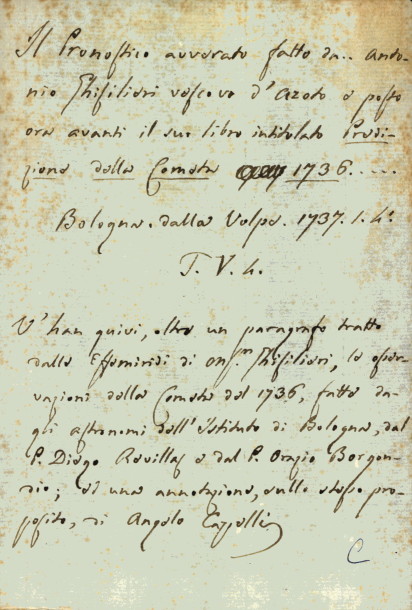 Il Pronostico avverato fatto da.. Anto-
nio Ghisilieri vescovo d'Azoto e posto
ora avanti il suo libro intitolato Predi-
zione della Cometa 1736. ....
Bologna. dalla Volpe. 1737. 1. 4.°
T. V. 4.
V'han quivi, oltre un paragrafo tratto
dalle Effemeridi di Ghisilieri, le osser-
vazioni della Cometa del 1736, fatte da-
gli astronomi dell'Istituto di Bologna, dal
P. Diego Revillas e dal P. Orazio Borgon-
dio; ed una annotazione, sullo stesso pro-
posito, di Angelo
C